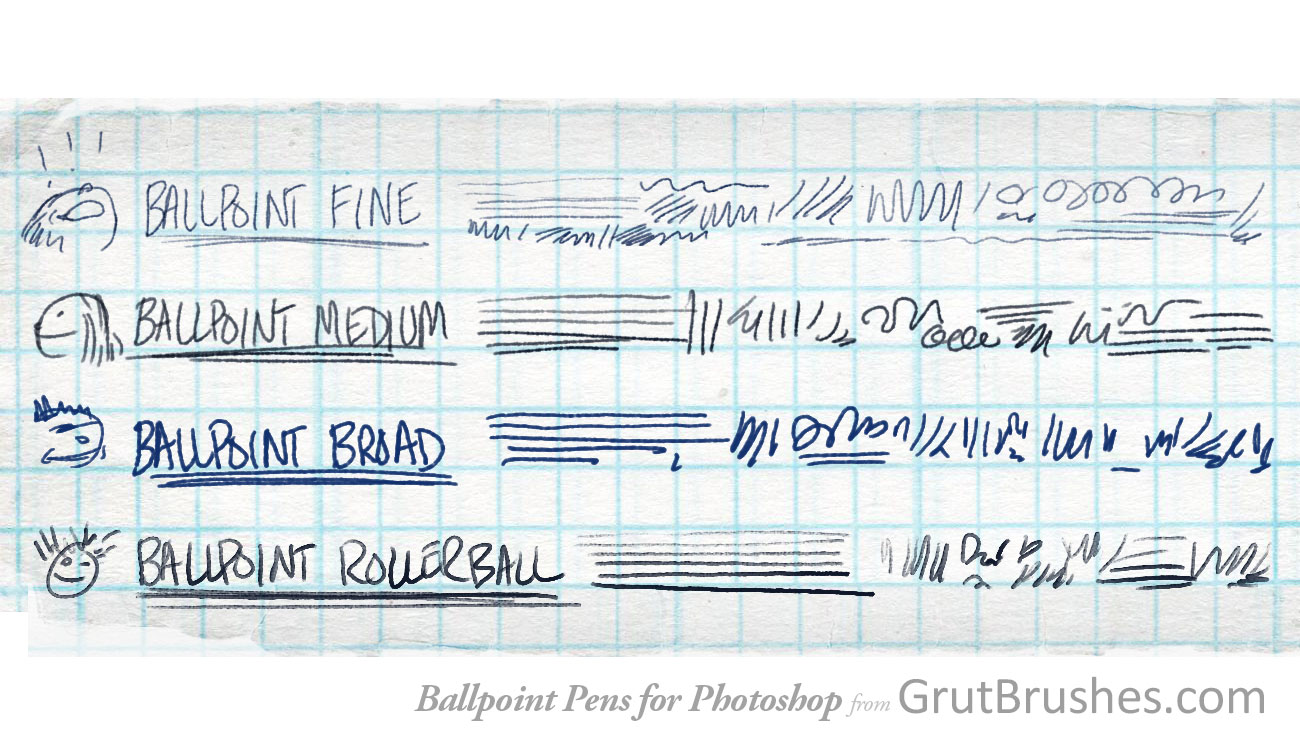 BALLPOINT FINE
BALLPOINT MEDIUM
BALLPOINT BROAD
BALLPOINT ROLLERBALL
Ballpoint Pens for Photoshop from GrutBrushes.com